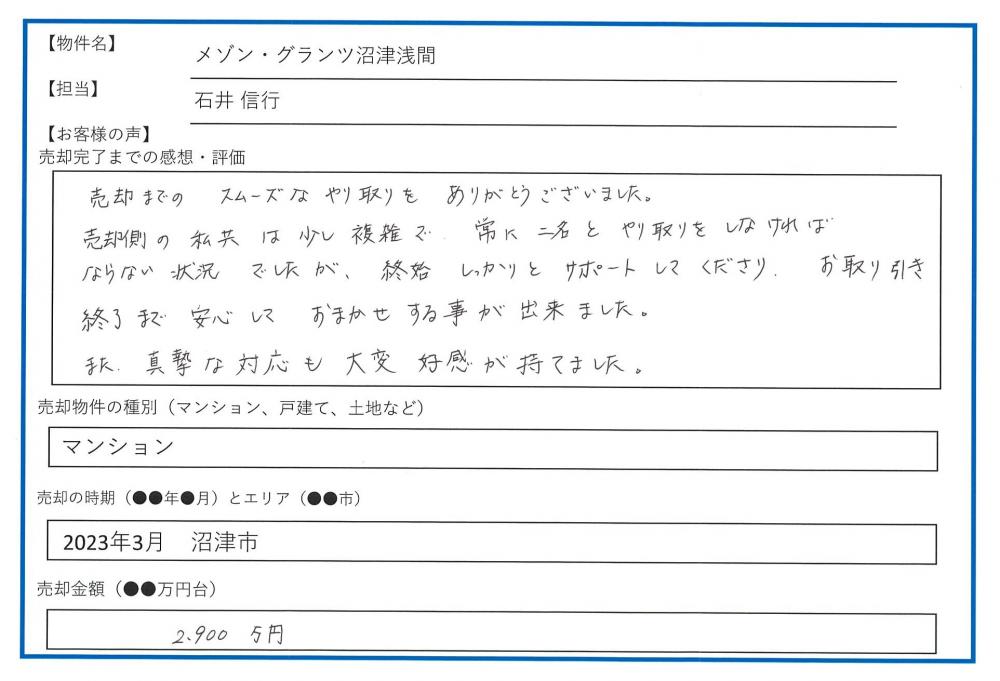 【物件名】
メゾン・グランツ沼津浅間
【担当】
石井 信行
【お客様の声】
売却完了までの感想・評価
売却までの スムーズな やり取りを ありがとうございました。
売却側の 私共 は 少し 複雑で、常に 二名と やり取りを しなければ
ならない 状況 でしたが、終始 しっかりと サポート して くださり、お取り引き
終了まで 安心して おまかせ する事が出来ました。
また、真摯な対応も 大変 好感が持てました。
売却物件の種別（マンション、戸建て、土地など）
マンション
売却の時期（●●年●月）とエリア（●●市）
2023年3月 沼津市
売却金額（●●万円台）
2.900 万円